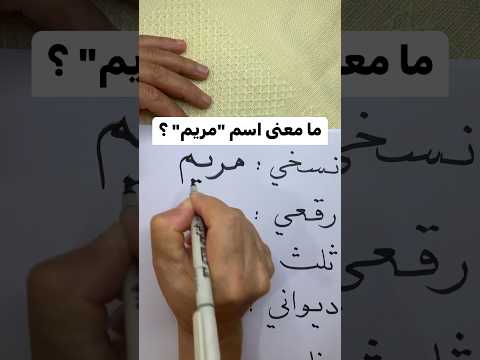 ما معنى اسم "مريم" ؟
نسخي : مريم
رقعي :
ثلث
ديواني :